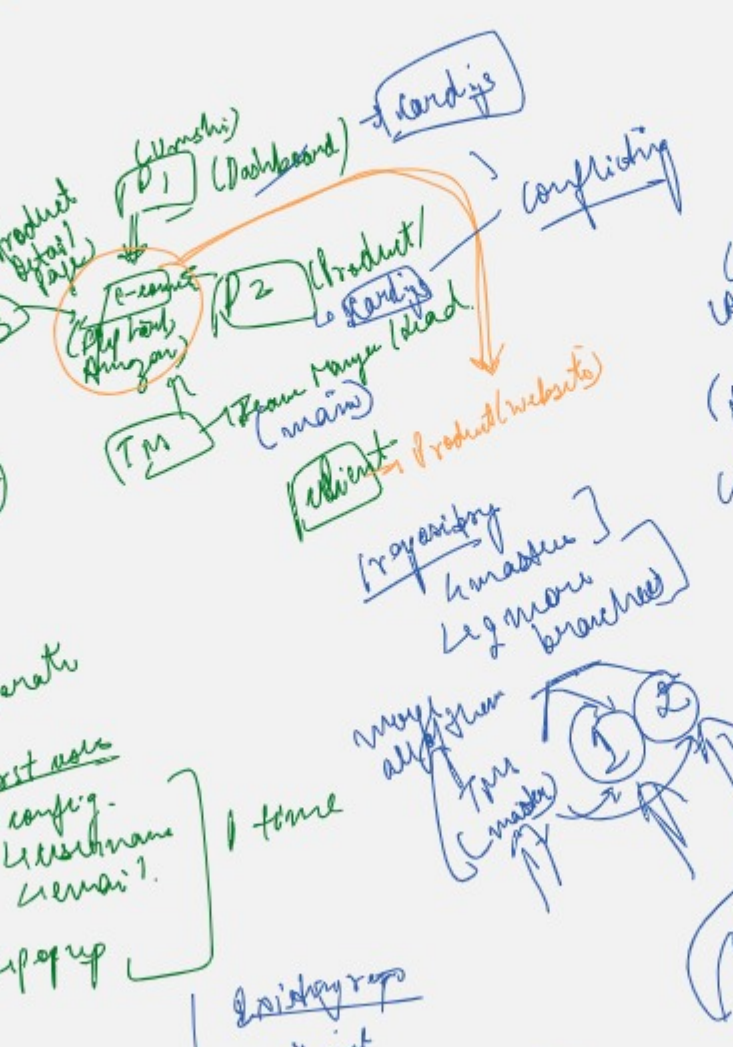 card.js
(Vamshi)
P1 (Dashboard)
conflicting
Product
Detail
Page)
e-com
P2 (Product/
↳ card.js
(Flipkart,
Amazon)
TM
Team Manager / Lead
(main)
client → Product (website)
repository
↳ master
↳ 2 more
branches
merge
all other
TM
(master)
1
2
config.
↳ username
↳ email.
1 time
popup
Existing repo